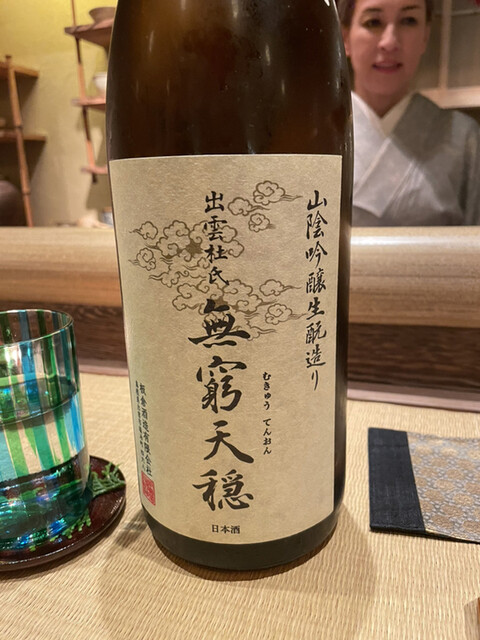 山陰吟醸生酛造り
出雲杜氏
無窮天穏
むきゅう てんおん
板倉酒造有限会社
日本酒